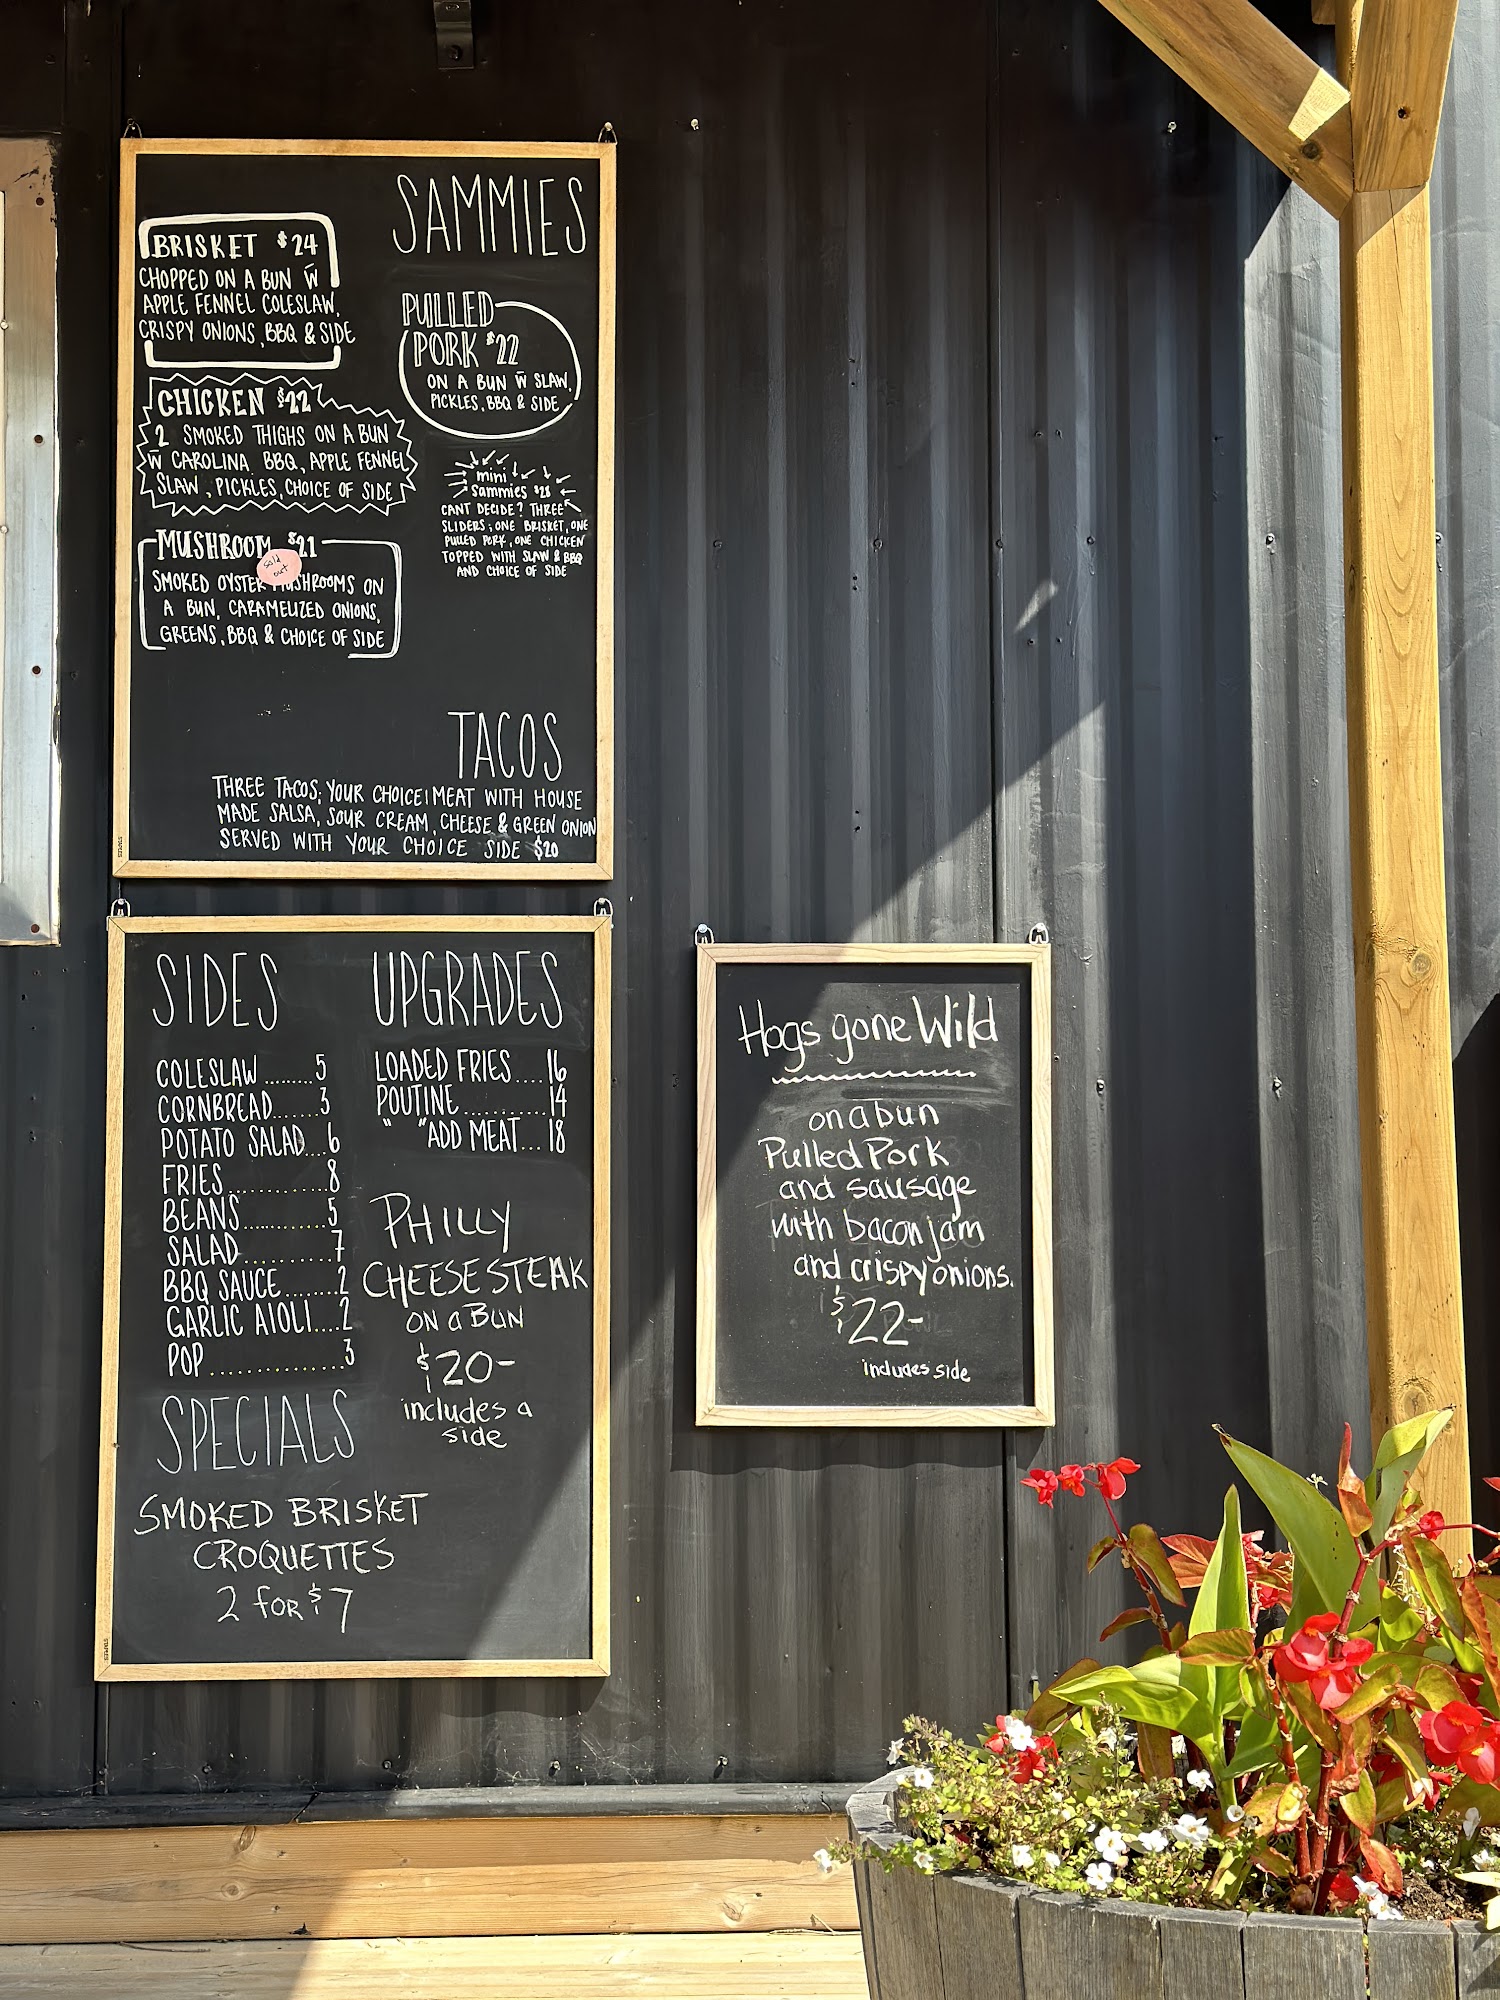 SAMMIES
BRISKET $24
CHOPPED ON A BUN W̅
APPLE FENNEL COLESLAW,
CRISPY ONIONS, BBQ & SIDE
PULLED
PORK $22
ON A BUN W̅ SLAW,
PICKLES, BBQ & SIDE
CHICKEN $22
2 SMOKED THIGHS ON A BUN
W̅ CAROLINA BBQ, APPLE FENNEL
SLAW, PICKLES, CHOICE OF SIDE
mini
sammies $28
CANT DECIDE? THREE
SLIDERS; ONE BRISKET, ONE
PULLED PORK, ONE CHICKEN
TOPPED WITH SLAW & BBQ
AND CHOICE OF SIDE
MUSHROOM $21
sold
out
SMOKED OYSTER MUSHROOMS ON
A BUN, CARAMELIZED ONIONS,
GREENS, BBQ & CHOICE OF SIDE
TACOS
THREE TACOS; YOUR CHOICE MEAT WITH HOUSE
MADE SALSA, SOUR CREAM, CHEESE & GREEN ONION
SERVED WITH YOUR CHOICE SIDE $20
STAPLES
SIDES
COLESLAW.........5
CORNBREAD.......3
POTATO SALAD....6
FRIES............8
BEANS............5
SALAD............7
BBQ SAUCE........2
GARLIC AIOLI....2
POP..............3
UPGRADES
LOADED FRIES....16
POUTINE...........14
" "ADD MEAT...18
PHILLY
CHEESESTEAK
ON a BUN
$20-
includes a
side
SPECIALS
SMOKED BRISKET
CROQUETTES
2 FOR $7
STAPLES
Hogs gone Wild
on a bun
Pulled Pork
and sausage
with bacon jam
and crispy onions.
$22-
includes side